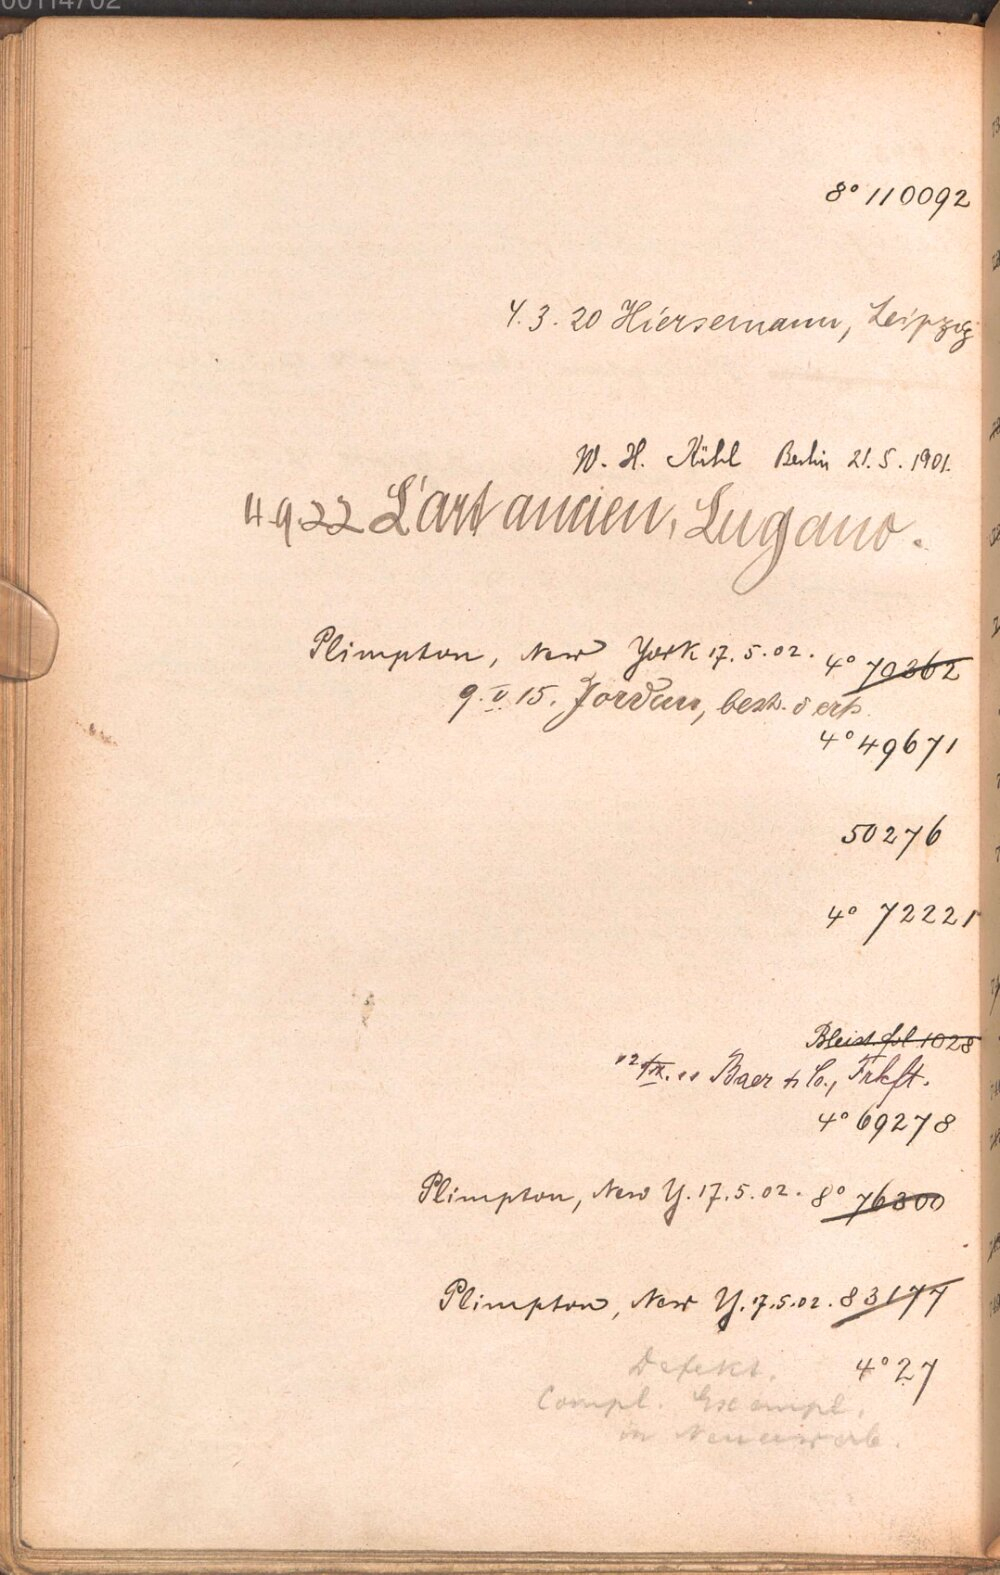 00114702
8° 110092
4. 3. 20 Hiersemann, Leipzig
W. H. Kühl Berlin 21. 5. 1901.
4922 L'art ancien, Lugano.
Plimpton, New York 17. 5. 02. 4° 70362
9. V. 15. Jordan, bez.
4° 49671
50276
4° 72221
Bleist. fol 1028
Baer & Co., Frkft.
4° 69278
Plimpton, New Y. 17. 5. 02. 8° 76300
Plimpton, New Y. 17. 5. 02. 83177
Defekt. 4° 27
Compl. Exempl.
in Neuerwerb.